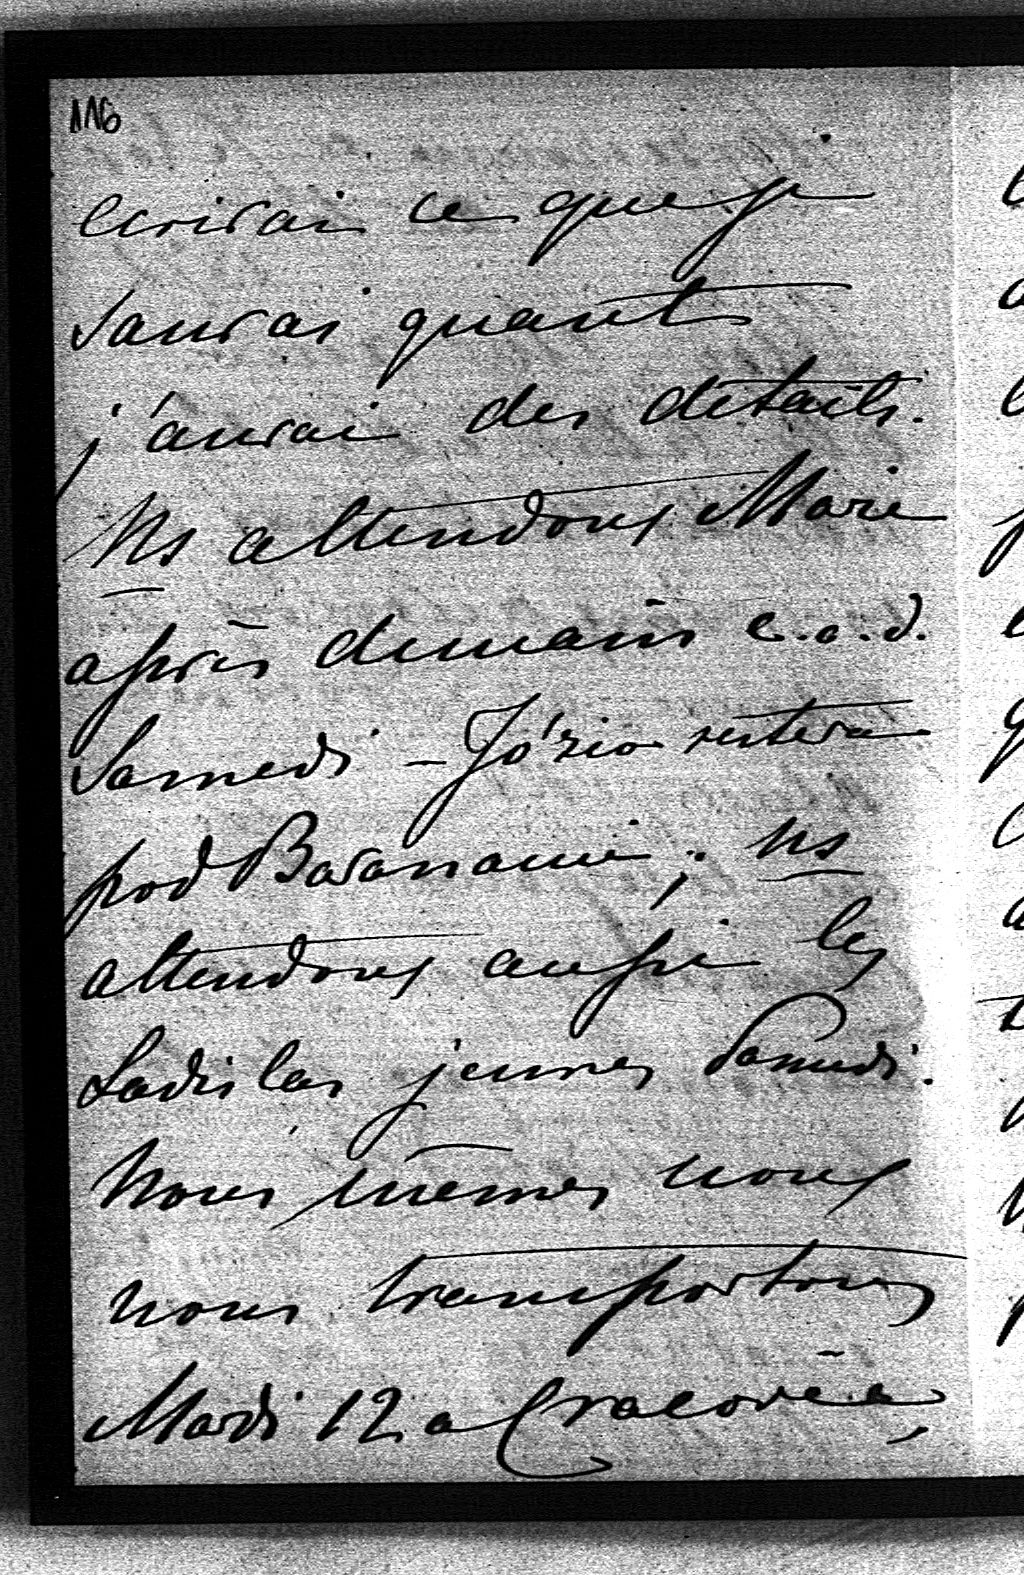 116
ecrirai ce que je
saurai quant
j'aurai des détails.
Ns attendons Marie
après demain c.a.d.
Samedi – Józio restera
pod Baranami; ns
attendons aussi les
Ladislas jeunes Samedi.
Nous mêmes nous
nous transportons
Mardi 12 a Cracovie,